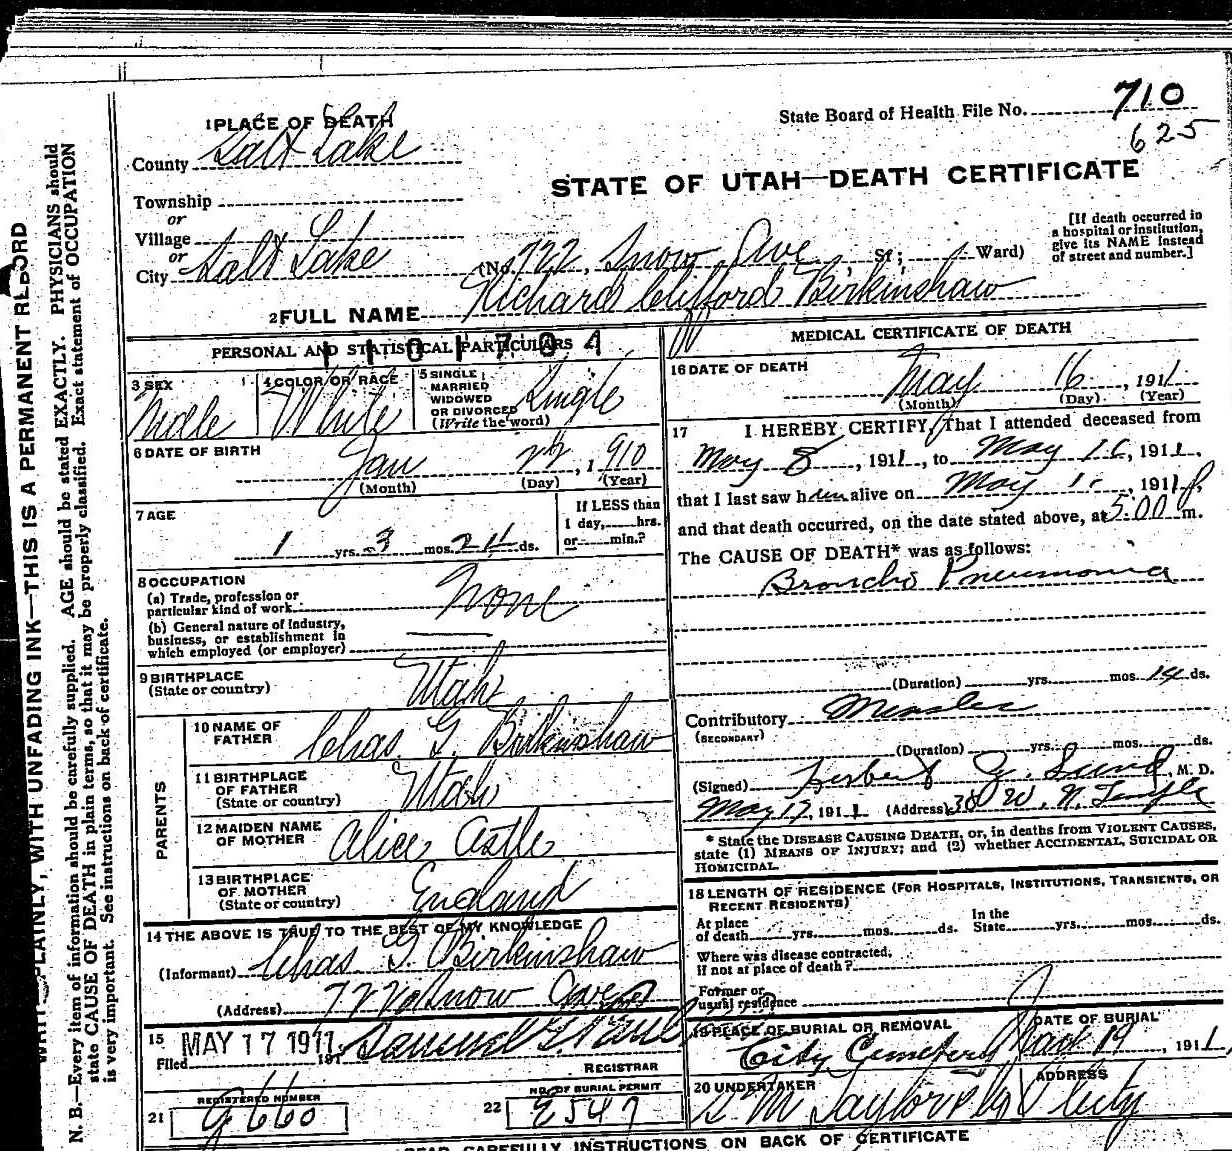 State Board of Health File No. 710
625
1 PLACE OF DEATH
County Salt Lake
STATE OF UTAH—DEATH CERTIFICATE
Township
or
Village
or
City Salt Lake (No. 722, Snow Ave St; Ward)
[If death occurred in a hospital or institution, give its NAME instead of street and number.]
2 FULL NAME Richard Clifford Birkinshaw
PERSONAL AND STATISTICAL PARTICULARS
3 SEX Male
4 COLOR OR RACE White
5 SINGLE, MARRIED WIDOWED OR DIVORCED (Write the word) Single
6 DATE OF BIRTH Jan 22, 1910
(Month) (Day) (Year)
7 AGE
1 yrs. 3 mos. 24 ds.
If LESS than 1 day, hrs. or min.?
8 OCCUPATION
(a) Trade, profession or particular kind of work None
(b) General nature of Industry, business, or establishment in which employed (or employer)
9 BIRTHPLACE (State or country) Utah
PARENTS
10 NAME OF FATHER Chas. G. Birkinshaw
11 BIRTHPLACE OF FATHER (State or country) Utah
12 MAIDEN NAME OF MOTHER Alice Astle
13 BIRTHPLACE OF MOTHER (State or country) England
14 THE ABOVE IS TRUE TO THE BEST OF MY KNOWLEDGE
(Informant) Chas G. Birkinshaw
(Address) 722 Snow Ave
15 Filed MAY 17 1911 191 Samuel G. Paul
REGISTRAR
21 REGISTERED NUMBER G660
22 NO. OF BURIAL PERMIT E547
MEDICAL CERTIFICATE OF DEATH
16 DATE OF DEATH May 16, 1911
(Month) (Day) (Year)
17 I HEREBY CERTIFY, That I attended deceased from
May 8, 1911, to May 16, 1911,
that I last saw him alive on May 1, 1911,
and that death occurred, on the date stated above, at 5:00 P m.
The CAUSE OF DEATH* was as follows:
Broncho Pneumonia
(Duration) yrs. mos. 14 ds.
Contributory Measles
(SECONDARY)
(Duration) yrs. mos. ds.
(Signed) Herbert Z. Lund, M. D.
May 17, 1911 (Address) 38 W. N. Temple
* State the DISEASE CAUSING DEATH, or, in deaths from VIOLENT CAUSES, state (1) MEANS OF INJURY; and (2) whether ACCIDENTAL, SUICIDAL OR HOMICIDAL.
18 LENGTH OF RESIDENCE (FOR HOSPITALS, INSTITUTIONS, TRANSIENTS, OR RECENT RESIDENTS)
At place of death yrs. mos. ds. In the State yrs. mos. ds.
Where was disease contracted, if not at place of death?
Former or usual residence
19 PLACE OF BURIAL OR REMOVAL City Cemetery
DATE OF BURIAL 19, 1911
20 UNDERTAKER S M Taylor
ADDRESS City
READ CAREFULLY INSTRUCTIONS ON BACK OF CERTIFICATE
WRITE PLAINLY, WITH UNFADING INK—THIS IS A PERMANENT RECORD
N. B.—Every item of information should be carefully supplied. AGE should be stated EXACTLY. PHYSICIANS should
state CAUSE OF DEATH in plain terms, so that it may be properly classified. Exact statement of OCCUPATION
is very important. See instructions on back of certificate.